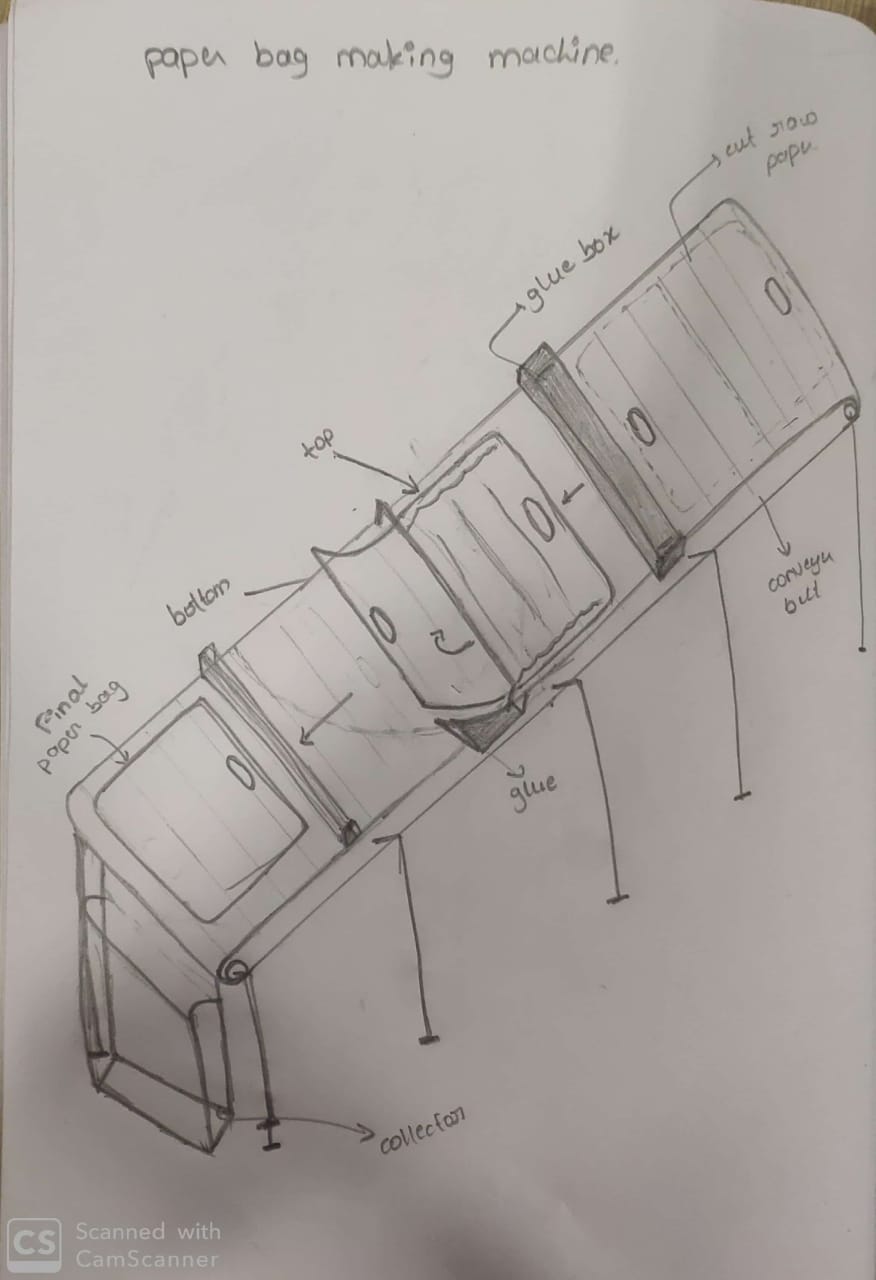 paper bag making machine.
cut raw
paper
glue box
top
bottom
Final
paper bag
conveyer
belt
glue
collector
CS Scanned with
CamScanner